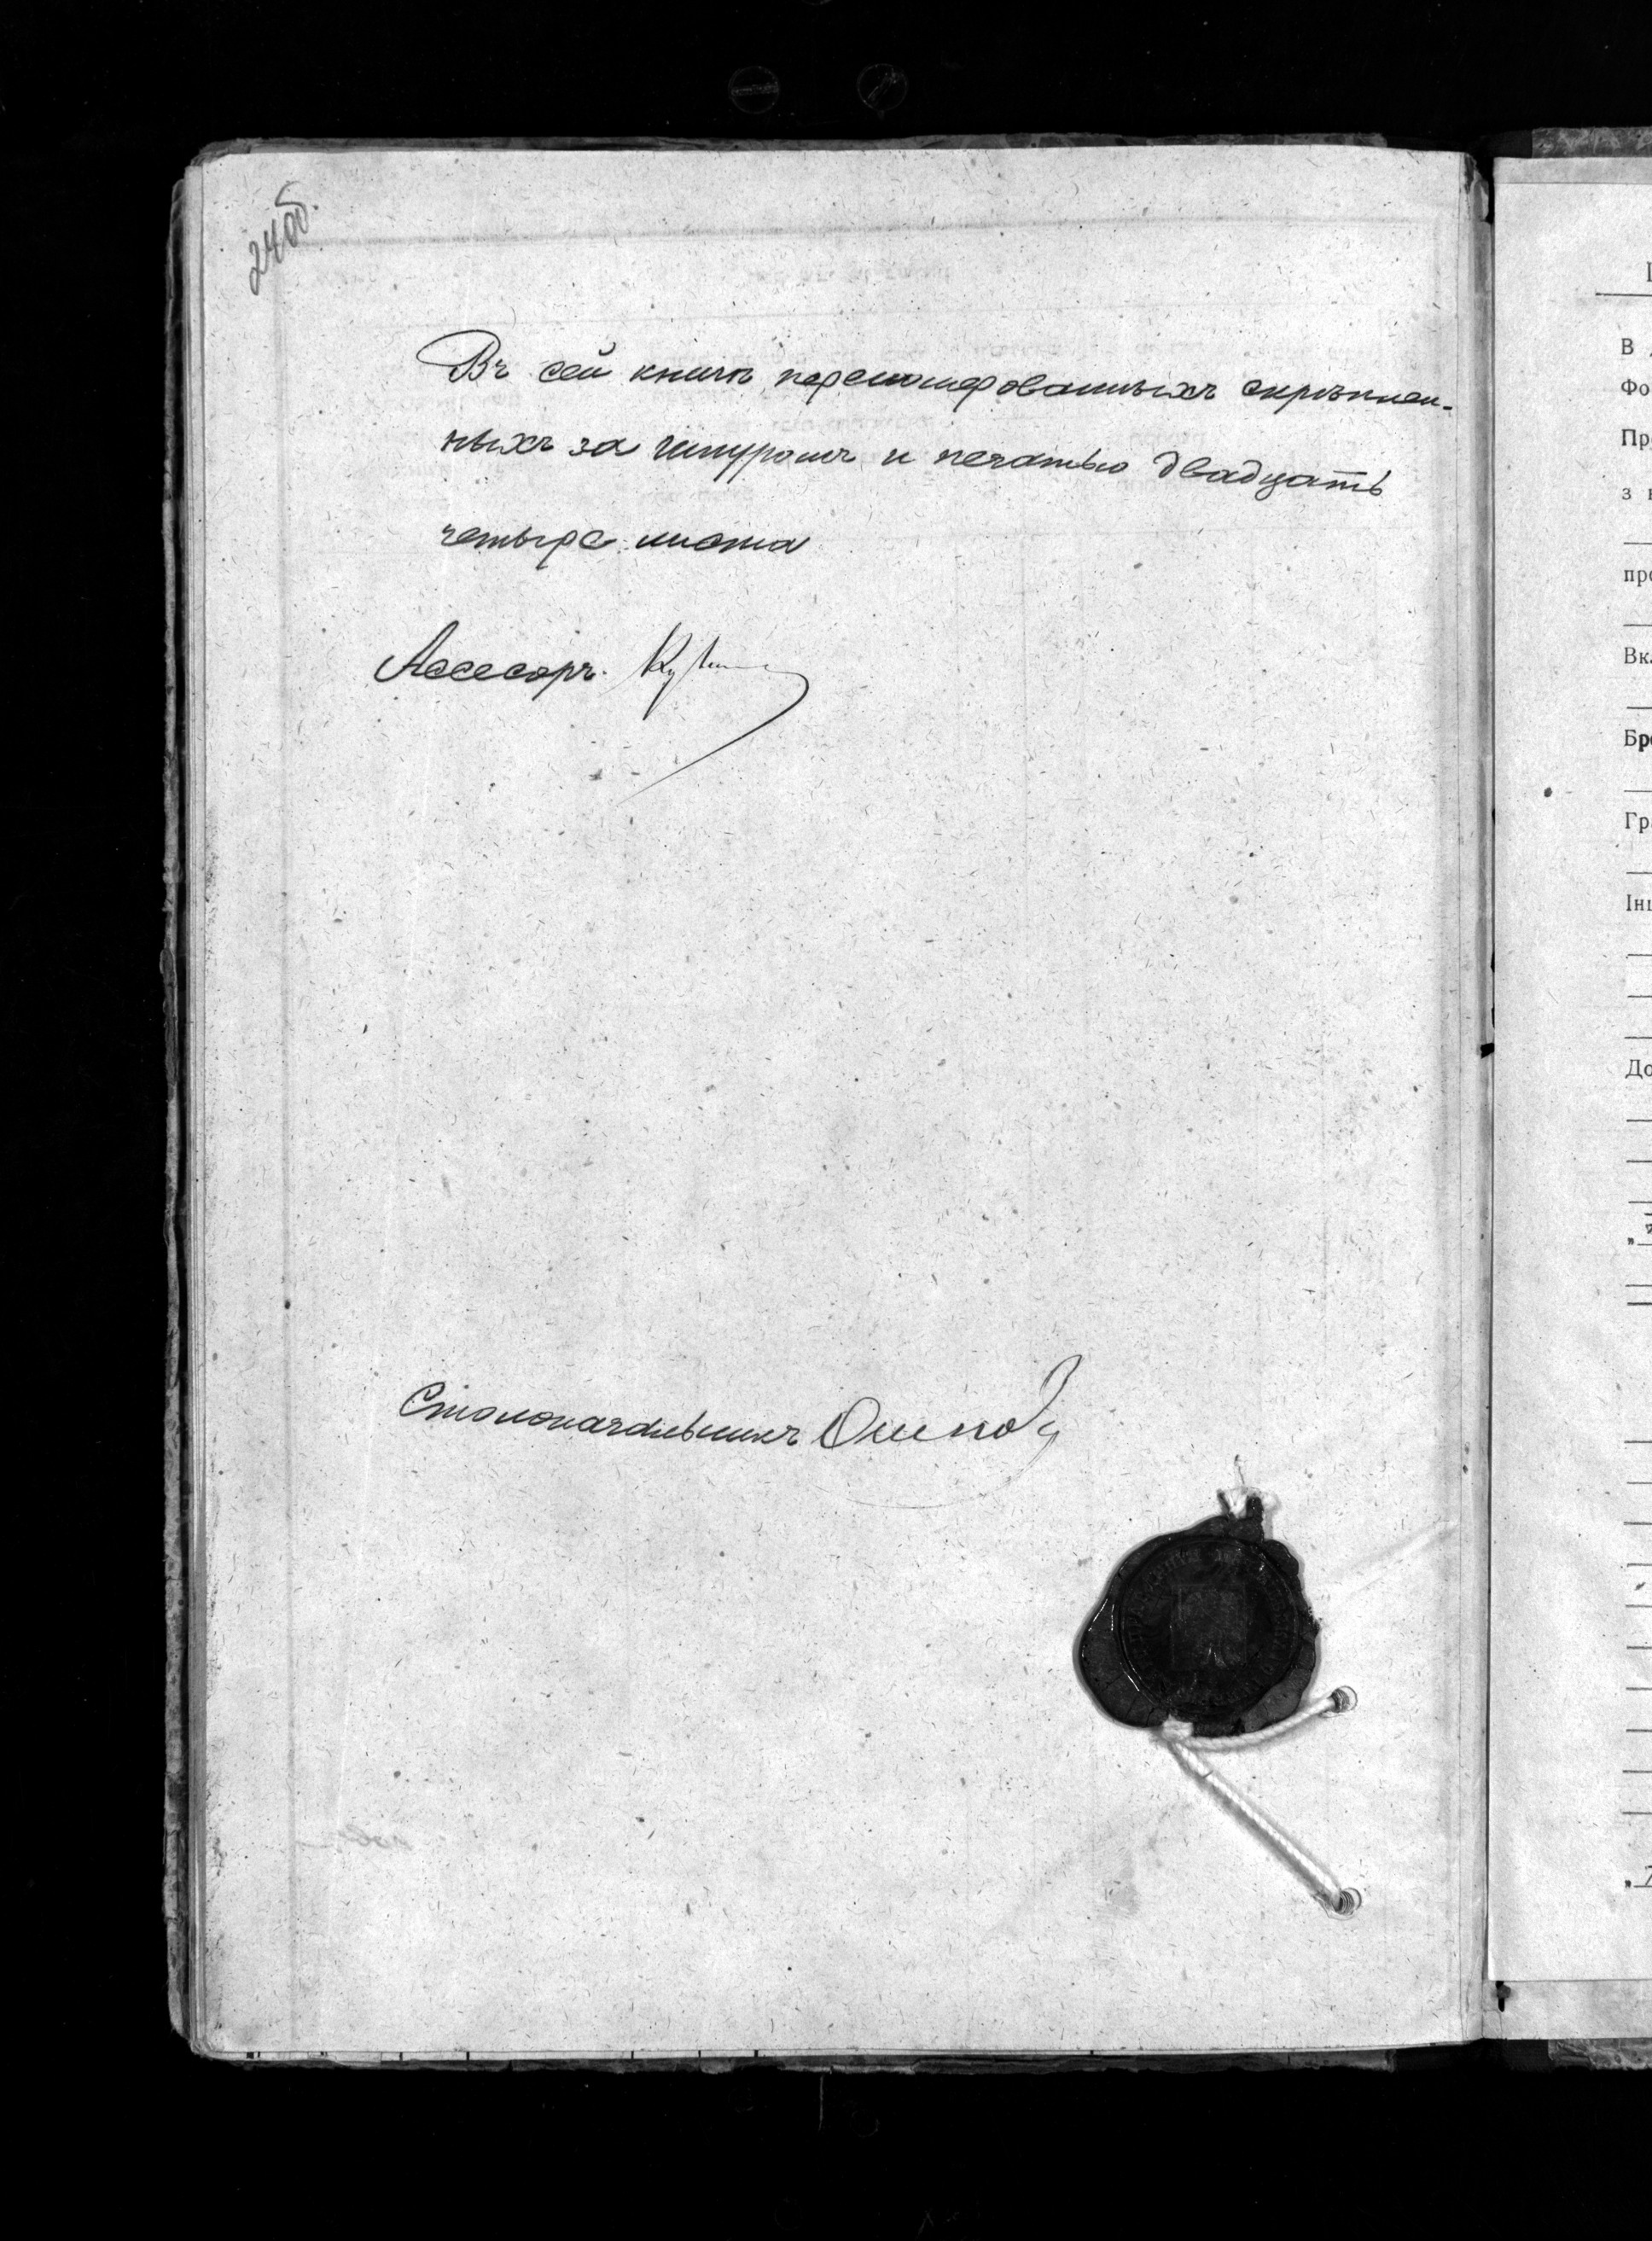 24об.
Въ сей книгѣ перенумерованныхъ скрѣплен-
ныхъ за шнуромъ и печатью двадцать
четыре листа
Ассесоръ
Столоначальникъ
В
Фо
Пр
з
про
Вк
Бр
Гр
Інш
До